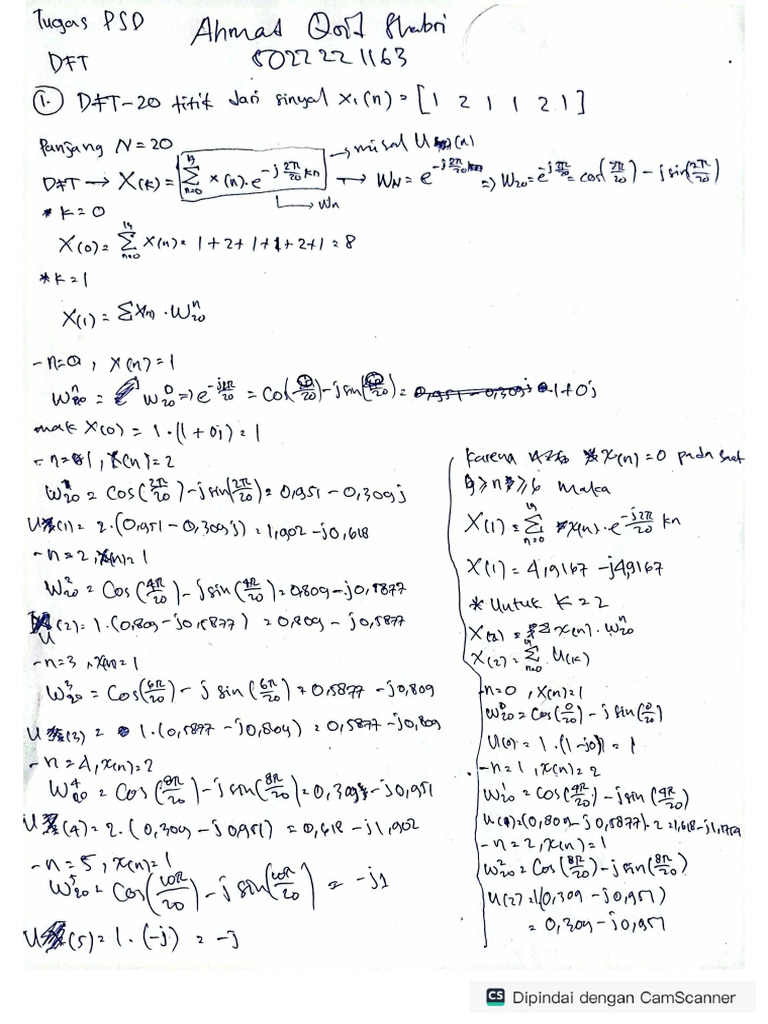 Tugas PSD
Ahmad Qori Shabri
5022221163
DFT
1. DFT-20 titik dari sinyal x₁(n) = [1 2 1 1 2 1]
Panjang N = 20
misal U(n)
DFT → X(k) = Σ x(n).e^(-j 2π/20 kn) → W_N = e^(-j 2π/20 kn) ⇒ W₂₀ = e^(-j 2π/20) = cos(2π/20) - j sin(2π/20)
Wn
* k = 0
X(0) = Σ x(n) = 1 + 2 + 1 + 1 + 2 + 1 = 8
* k = 1
X(1) = Σ x(n) . W₂₀ⁿ
- n=0, x(n) = 1
W₂₀ⁿ = W₂₀⁰ ⇒ e^(-j2π/20) = cos(0/20) - j sin(0/20) = 1 + 0j
mak X(0) = 1 . (1 + 0j) = 1
- n=1, x(n) = 2
W₂₀ = cos(2π/20) - j sin(2π/20) = 0,951 - 0,309j
U(1) = 2.(0,951 - 0,309j) = 1,902 - j0,618
- n = 2, x(n) = 1
W₂₀² = cos(4π/20) - j sin(4π/20) = 0,809 - j0,5877
U(2) = 1.(0,809 - j0,5877) = 0,809 - j0,5877
- n=3, x(n)=1
W₂₀³ = cos(6π/20) - j sin(6π/20) = 0,5877 - j0,809
U(3) = 1.(0,5877 - j0,809) = 0,5877 - j0,809
- n = 4, x(n) = 2
W₂₀⁴ = cos(8π/20) - j sin(8π/20) = 0,309 - j0,951
U(4) = 2.(0,309 - j0,951) = 0,618 - j1,902
- n = 5, x(n) = 1
W₂₀⁵ = cos(10π/20) - j sin(10π/20) = -j1
U(5) = 1.(-j) = -j
Karena x(n) = 0 pada saat
maka
X(1) = Σ x(n).e^(-j2π/20) kn
X(1) = 4,9167 - j4,9167
* Untuk k = 2
X(2) = Σ x(n).W₂₀ⁿ
X(2) = Σ U(k)
- n=0, x(n)=1
W₂₀⁰ = cos(0/20) - j sin(0/20)
U(0) = 1.(1 - j0) = 1
- n=1, x(n) = 2
W₂₀¹ = cos(4π/20) - j sin(4π/20)
U(1) = (0,809 - j0,5877).2 = 1,618 - j1,1754
- n = 2, x(n) = 1
W₂₀² = cos(8π/20) - j sin(8π/20)
U(2) = 1(0,309 - j0,951)
= 0,309 - j0,951
CS Dipindai dengan CamScanner